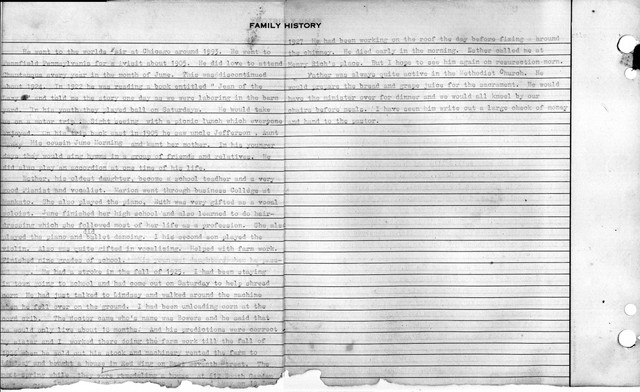 FAMILY HISTORY
He went to the worlds fair at Chicago around 1893. He went to
Mansfield Pennsylvania for a visit about 1905. He did love to attend
Chautauqua every year in the month of June. This was discontinued
about 1924. In 1922 he was reading a book entitled "Jean of the
and told me the story one day as we were laboring in the barn
In his youth they played ball on Saturdays. He would take
us on a motor trip in Sight seeing with a picnic lunch which everyone
enjoyed. On his trip back east in 1905 he saw uncle Jefferson, Aunt
His cousin June Horning and kent her mother. In his younger
days they would sing hymns in a group of friends and relatives. He
did also play an accordion at one time of his life.
Esther, his oldest daughter, became a school teacher and a very
good Pianist and vocalist. Marion went through business College at
Mankato. She also played the piano. Ruth was very gifted as a vocal
soloist. June finished her high school and also learned to do hair-
dressing which she followed most of her life as a profession. She also
played the piano and did ballet dancing. I his second son played the
violin. Also was quite gifted in vocalising. Helped with farm work.
Finished nine grades of school.
He had a stroke in the fall of 1925. I had been staying
in town going to school and had come out on Saturday to help shred
corn. He had just talked to Lindsay and walked around the machine
when he fell over on the ground. I had been unloading corn at the
corn crib. The doctor who's name was Bowers and he said that
he would only live about 18 months. And his predictions were correct
sister and I worked there doing the farm work till the fall of
1926 when he sold out his stock and machinery rented the farm to
and bought a house in Red Wing on East Seventh Street. The
1927 He had been working on the roof the day before fixing around
the chimney. He died early in the morning. Esther called me at
Henry Hish's place. But I hope to see him again on resurrection morn.
Father was always quite active in the Methodist Church. He
would prepare the bread and grape juice for the sacrament. He would
have the minister over for dinner and we would all kneel by our
chairs before meals. I have seen him write out a large check of money
and hand to the pastor.